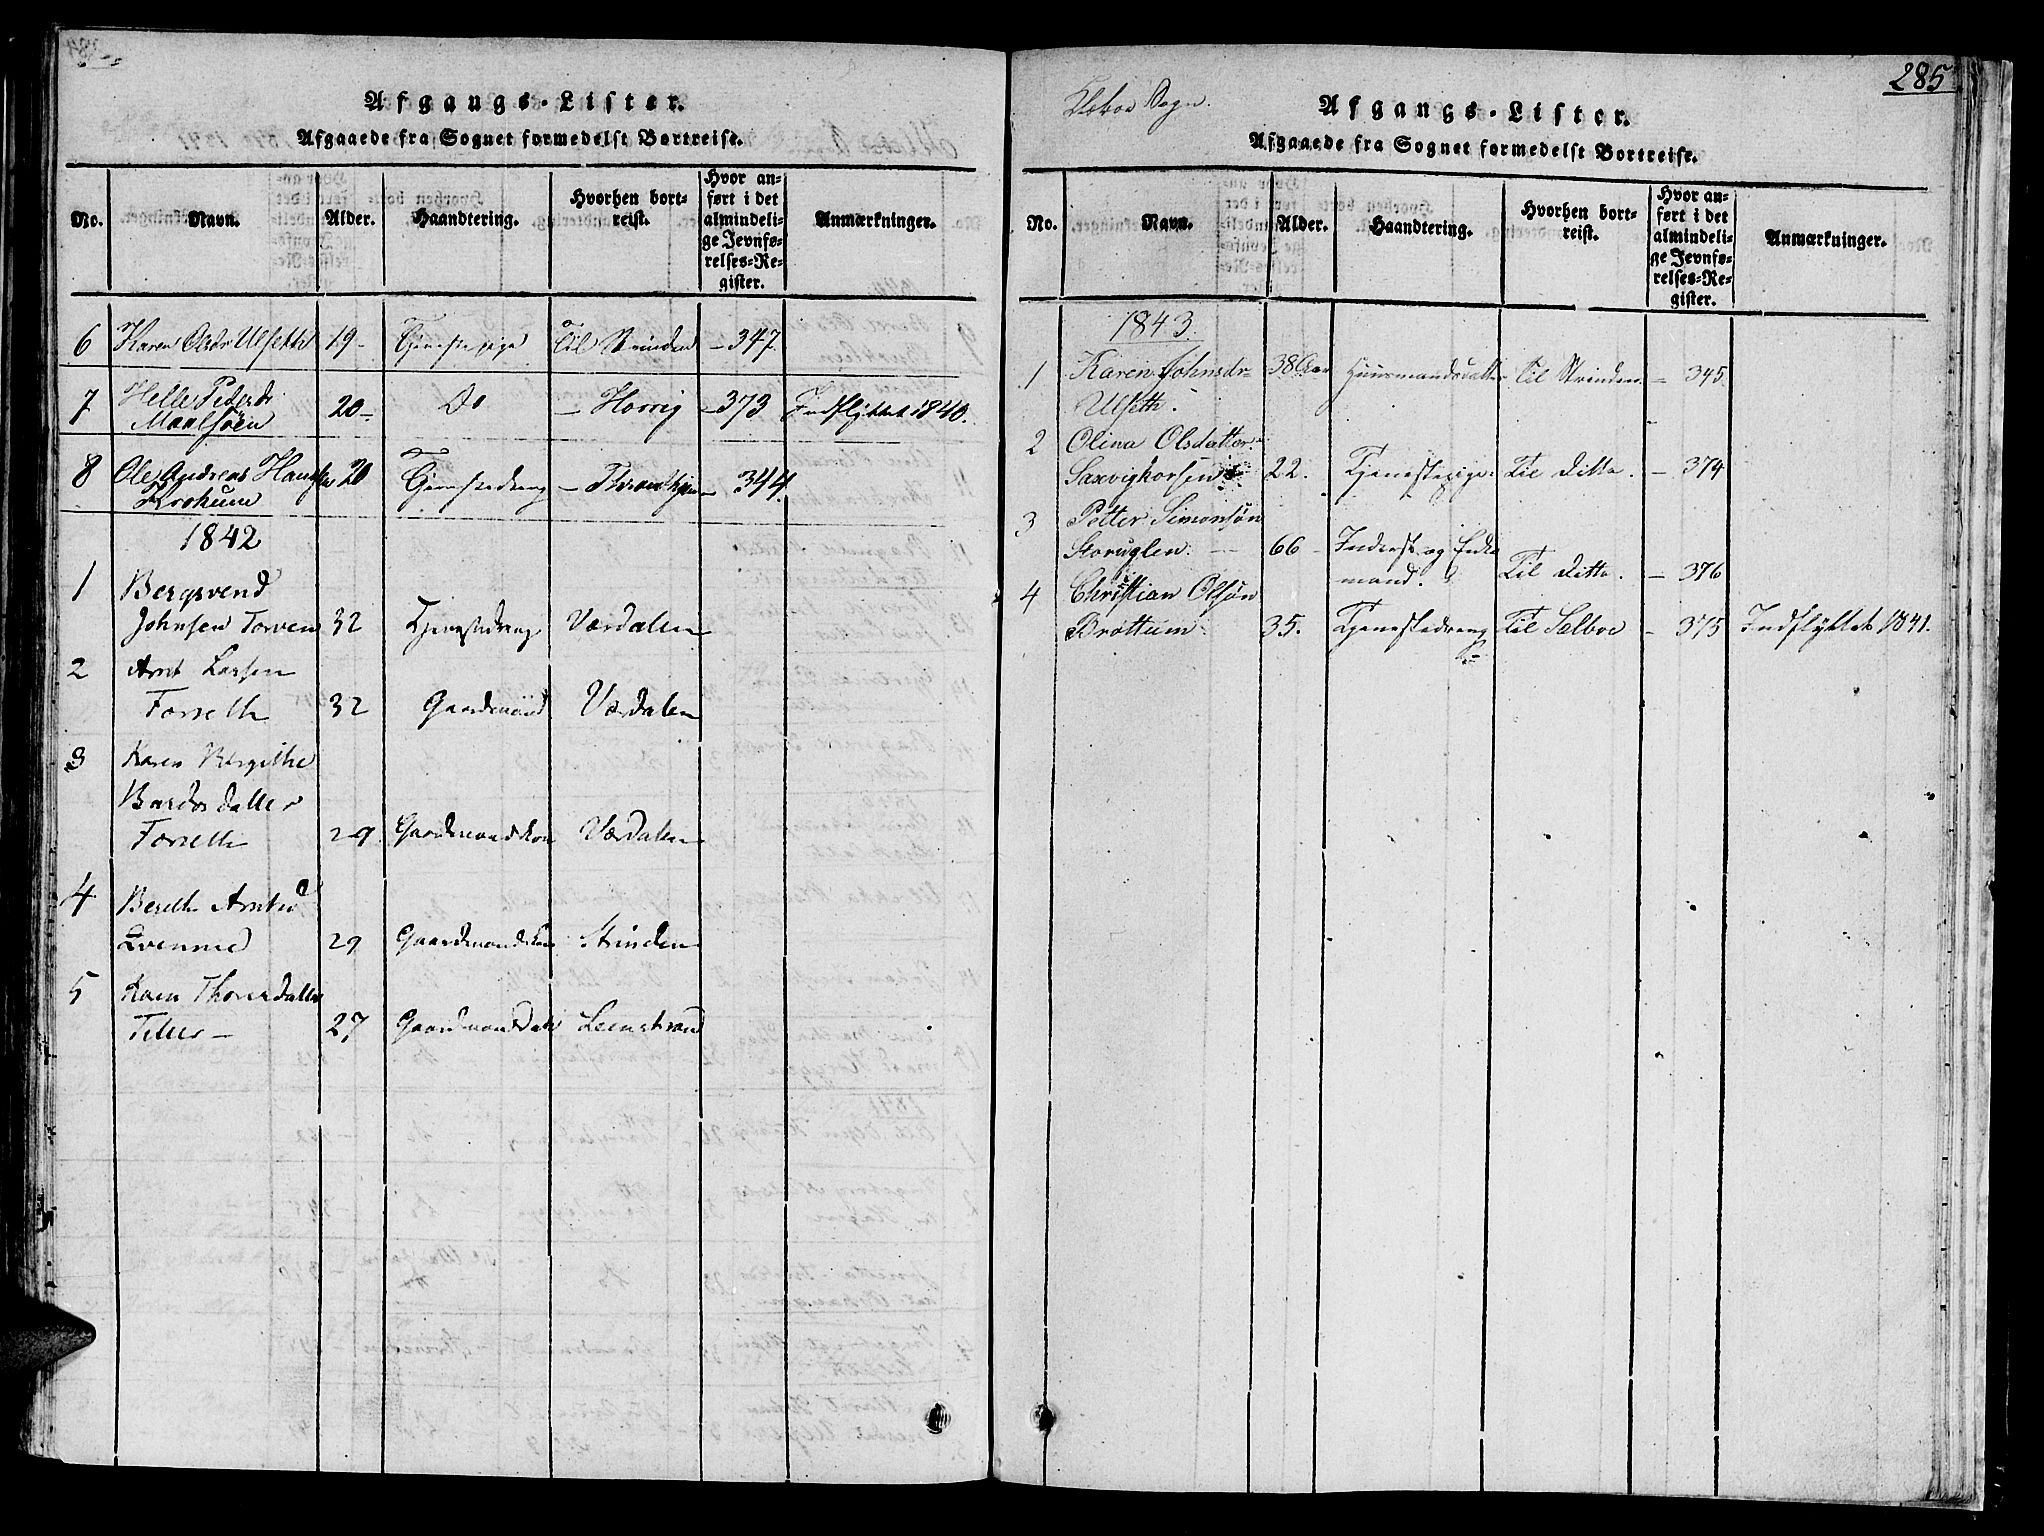 Afgangs-Lister.
Afgaaede fra Sognet formedelst Bortreise.
No. Navn. Alder. Haandtering. Hvorhen bortreist. Hvor anført i det almindelige Jevnførelses-Register. Anmærkninger.
6 Karen Olsdr Ulseth 19- Tjenestepige Til Strinden - 347.
7 Helle Pedersdr 20- Do - Horrig - 373 Indflyttet 1840.
Maalsöen
8 Ole Andreas Hansen 20 Tjenestedreng - Trondhjem - 344.
Krokum
1842
1 Bergsvend
Johnsen Torven 32 Tjenestedreng Værdalen
2 Arnt Larsen
Forseth 32 Gaardmand Værdalen
3 Karen Birgithe
Bardosdatter
Forseth 29 Gaardmandskone Værdalen
4 Bereth Arntsd
Qvenne 29 Gaardmandskone Strinden
5 Karen Thorsdatter
Tiller - 27 Gaardmandsdatr Leenstrand
285
Klæboe Sogn.
Afgangs-Lister.
Afgaaede fra Sognet formedelst Bortreise.
No. Navn. Alder. Haandtering. Hvorhen bortreist. Hvor anført i det almindelige Jevnførelses-Register. Anmærkninger.
1843.
1 Karen Johnsdr 38 Aar Huusmandsdatter Til Strinden - 345.
Ulseth.
2 Olina Olsdatter
Saxvighorsen 22. Tjenestepige Til ditto. - 374
3 Petter Simonsøn
Storuglen. 66 - Inderst og Enke
mand. Til ditto. - 376
4 Christian Olsøn
Brøttum 35. Tjenestedreng Til Selboe - 375 Indflyttet 1841.